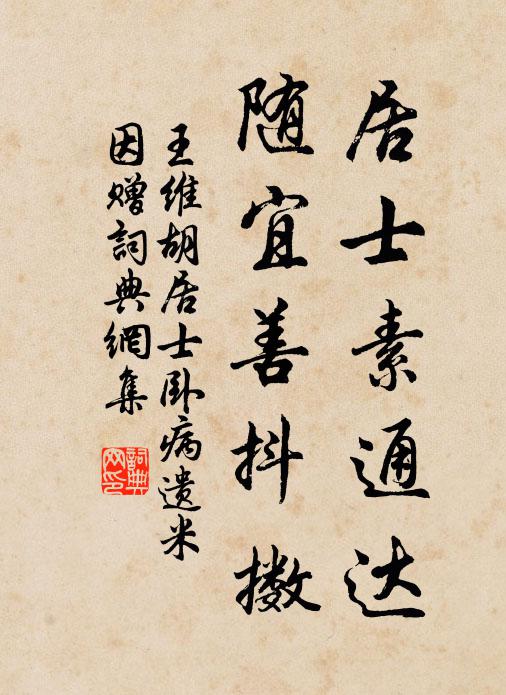 居士素通达
随宜善抖擞
王维胡居士卧病遗米
因赠詞典網集
詞典网印